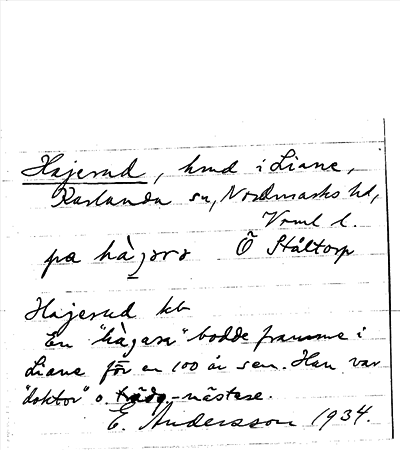 Hajerud, hmd i Liane,
Karlanda sn, Nordmarks hd,
Vrml l.
pa hàgərə Ö Ståltorp
Hajerud kb
En "hàgara" bodde framme i
Liane för en 100 år sen. Han var
"doktor" o. -nästare.
E. Andersson 1934.